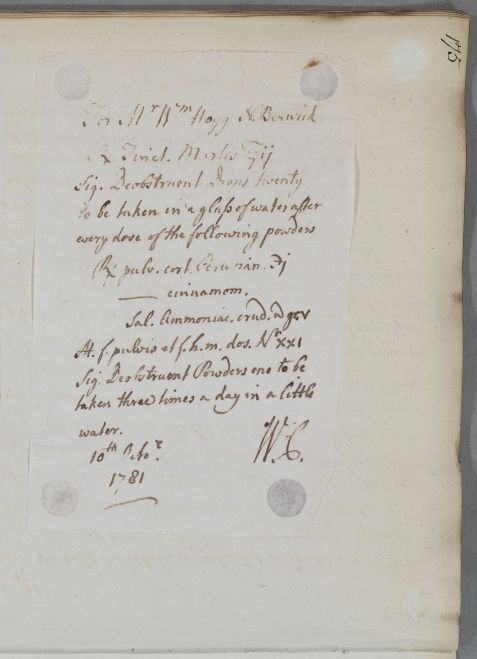 175
For Mr Wm Hogg N. Berwick
℞ Tinct. Martis ʒij
Sig. Deobstruent Drops twenty
to be taken in a glass of water after
every dose of the following powders
℞ pulv. cort. Peruvian. ʒj
—— cinnamom.
Sal. Ammoniac. crud. a gr. v
M. f. pulvis et f. h. m. dos. No XXI
Sig. Deobstruent Powders one to be
taken three times a day in a little
water.
W. C.
10th Octor.
1781